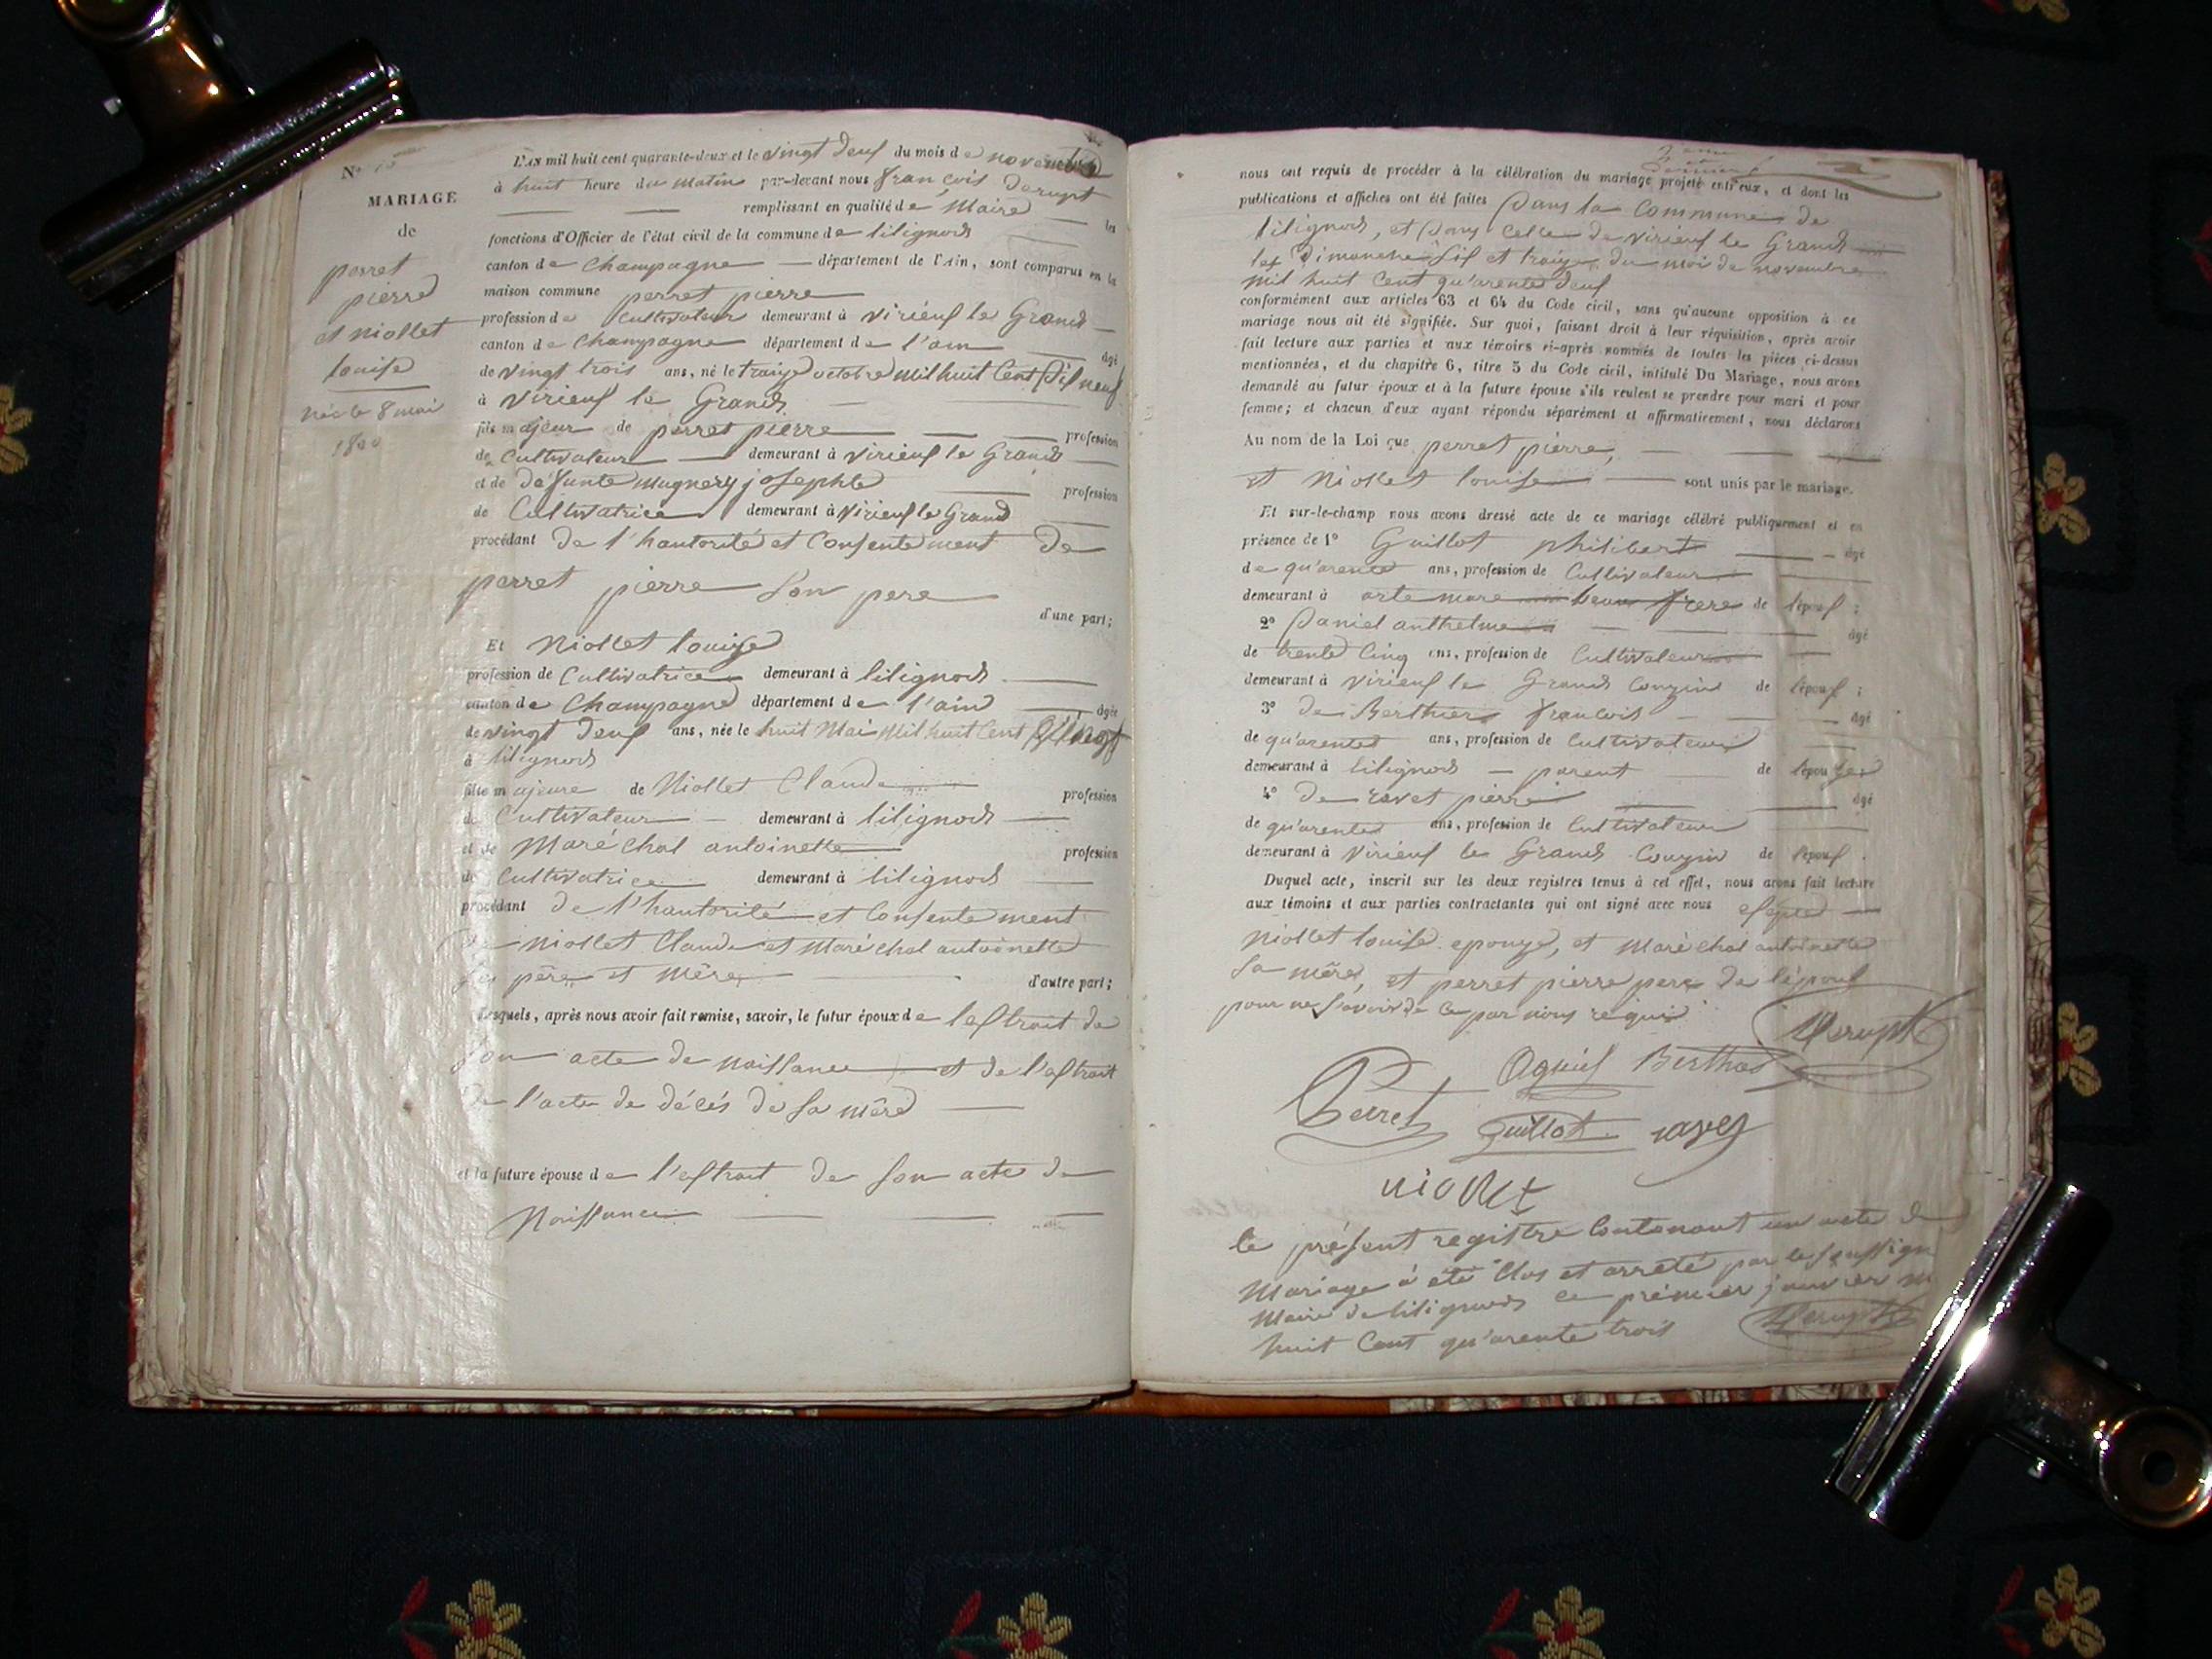 N°
MARIAGE
de
perret
pierre
et Niollet
louise
née le 8 mai
1820
L'AN mil huit cent quarante-deux et le vingt deux du mois de novembre
à huit heure du matin par-devant nous françois Derupt
remplissant en qualité de Maire les
fonctions d'Officier de l'état civil de la commune de lilignods
canton de Champagne département de l'Ain, sont comparus en la
maison commune perret pierre
profession de Cultivateur demeurant à virieux le Grand
canton de Champagne département de l'ain âgé
de vingt trois ans, né le traize octobre mil huit Cent Dix neuf
à Virieux le Grand
fils majeur de perret pierre profession
de Cultivateur demeurant à virieux le Grand
et de défunte mugnery josephte profession
de Cultivatrice demeurant à Virieux le Grand
procédant de l'hautorité et Consentement de
perret pierre Son pere
d'une part;
Et Niollet louise
profession de Cultivatrice demeurant à lilignods
canton de Champagne département de l'ain âgée
de vingt Deux ans, née le huit Mai Mil huit Cent vingt
à lilignods
fille majeure de Niollet Claude profession
de Cultivateur demeurant à lilignods
et de Maréchal antoinette profession
de Cultivatrice demeurant à lilignods
procédant de l'hautorité et Consentement
de Niollet Claude et Maréchal antoinette
Ses père et mère d'autre part;
Lesquels, après nous avoir fait remise, savoir, le futur époux de lextrait de
Son acte de Naissance et de l'extrait
de l'acte de décés de Sa mère
et la future épouse de l'extrait de Son acte de
Naissance
2eme
et
dernier
nous ont requis de procéder à la célébration du mariage projeté entr'eux, et dont les
publications et affiches ont été faites Dans la Commune de
lilignods, et Dans Celle de virieux le Grand
les Dimanche Six et traize du moi de novembre
mil huit Cent qu'arente deux
conformément aux articles 63 et 64 du Code civil, sans qu'aucune opposition à ce
mariage nous ait été signifiée. Sur quoi, faisant droit à leur réquisition, après avoir
fait lecture aux parties et aux témoins ci-après nommés de toutes les pièces ci-dessus
mentionnées, et du chapitre 6, titre 5 du Code civil, intitulé Du Mariage, nous avons
demandé au futur époux et à la future épouse s'ils veulent se prendre pour mari et pour
femme; et chacun d'eux ayant répondu séparément et affirmativement, nous déclarons
Au nom de la Loi que perret pierre,
et Niollet louise sont unis par le mariage.
Et sur-le-champ nous avons dressé acte de ce mariage célébré publiquement et en
présence de 1° Guillot philibert âgé
de qu'arente ans, profession de Cultivateur
demeurant à artemare beau frere de lépoux;
2° Daniel anthelme âgé
de trente Cinq ans, profession de Cultivateur
demeurant à virieux le Grand Couzin de lépoux;
3° de Berthier francois âgé
de qu'arente ans, profession de Cultivateur
demeurant à lilignods parent de lépouse
4° de ravet pierre âgé
de qu'arente ans, profession de Cultivateur
demeurant à Virieux le Grand Couzin de lépoux.
Duquel acte, inscrit sur les deux registres tenus à cet effet, nous avons fait lecture
aux témoins et aux parties contractantes qui ont signé avec nous excepté
Niollet louise epouze, et Maréchal antoinette
Sa mère, et perret pierre pere de lépoux
pour ne Savoir de ce par nous requis
Derupt
Berthet
Perret Guillot ravet
niollet
le présent registre Contenant un acte de
Mariage à été Clos et arrété par le Soussign
Maire de lilignods ce prémier janvier m
huit Cent qu'arente trois Derupt